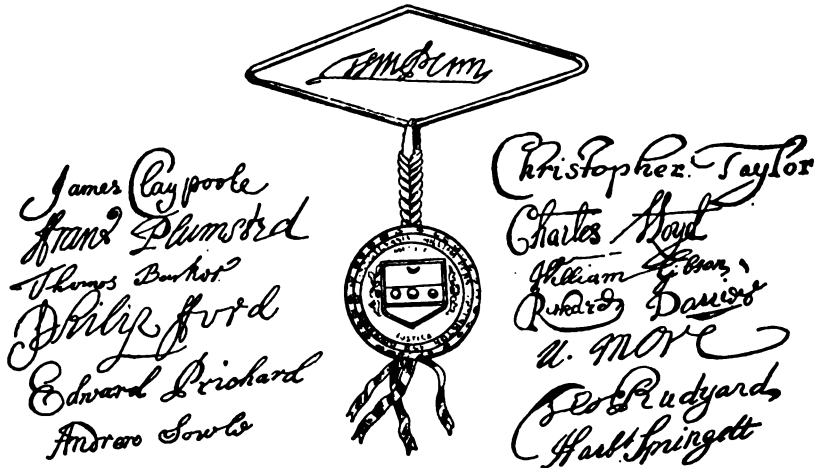 Wm Penn
James Claypoole
Franc Plumsted
Thomas Barker
Philip Ford
Edward Prichard
Andrew Sowle
JUSTICE
Christopher Taylor
Charles Lloyd
William Gibson
Richard Davies
N. More
Geo Rudyard
Harbt Springett